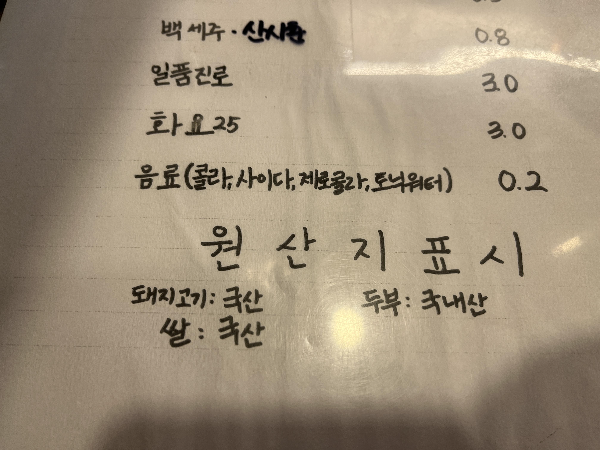 백세주 · 산사춘 0.8
일품진로 3.0
화요25 3.0
음료(콜라, 사이다, 제로콜라, 토닉워터) 0.2
원산지표시
돼지고기: 국산 두부: 국내산
쌀: 국산